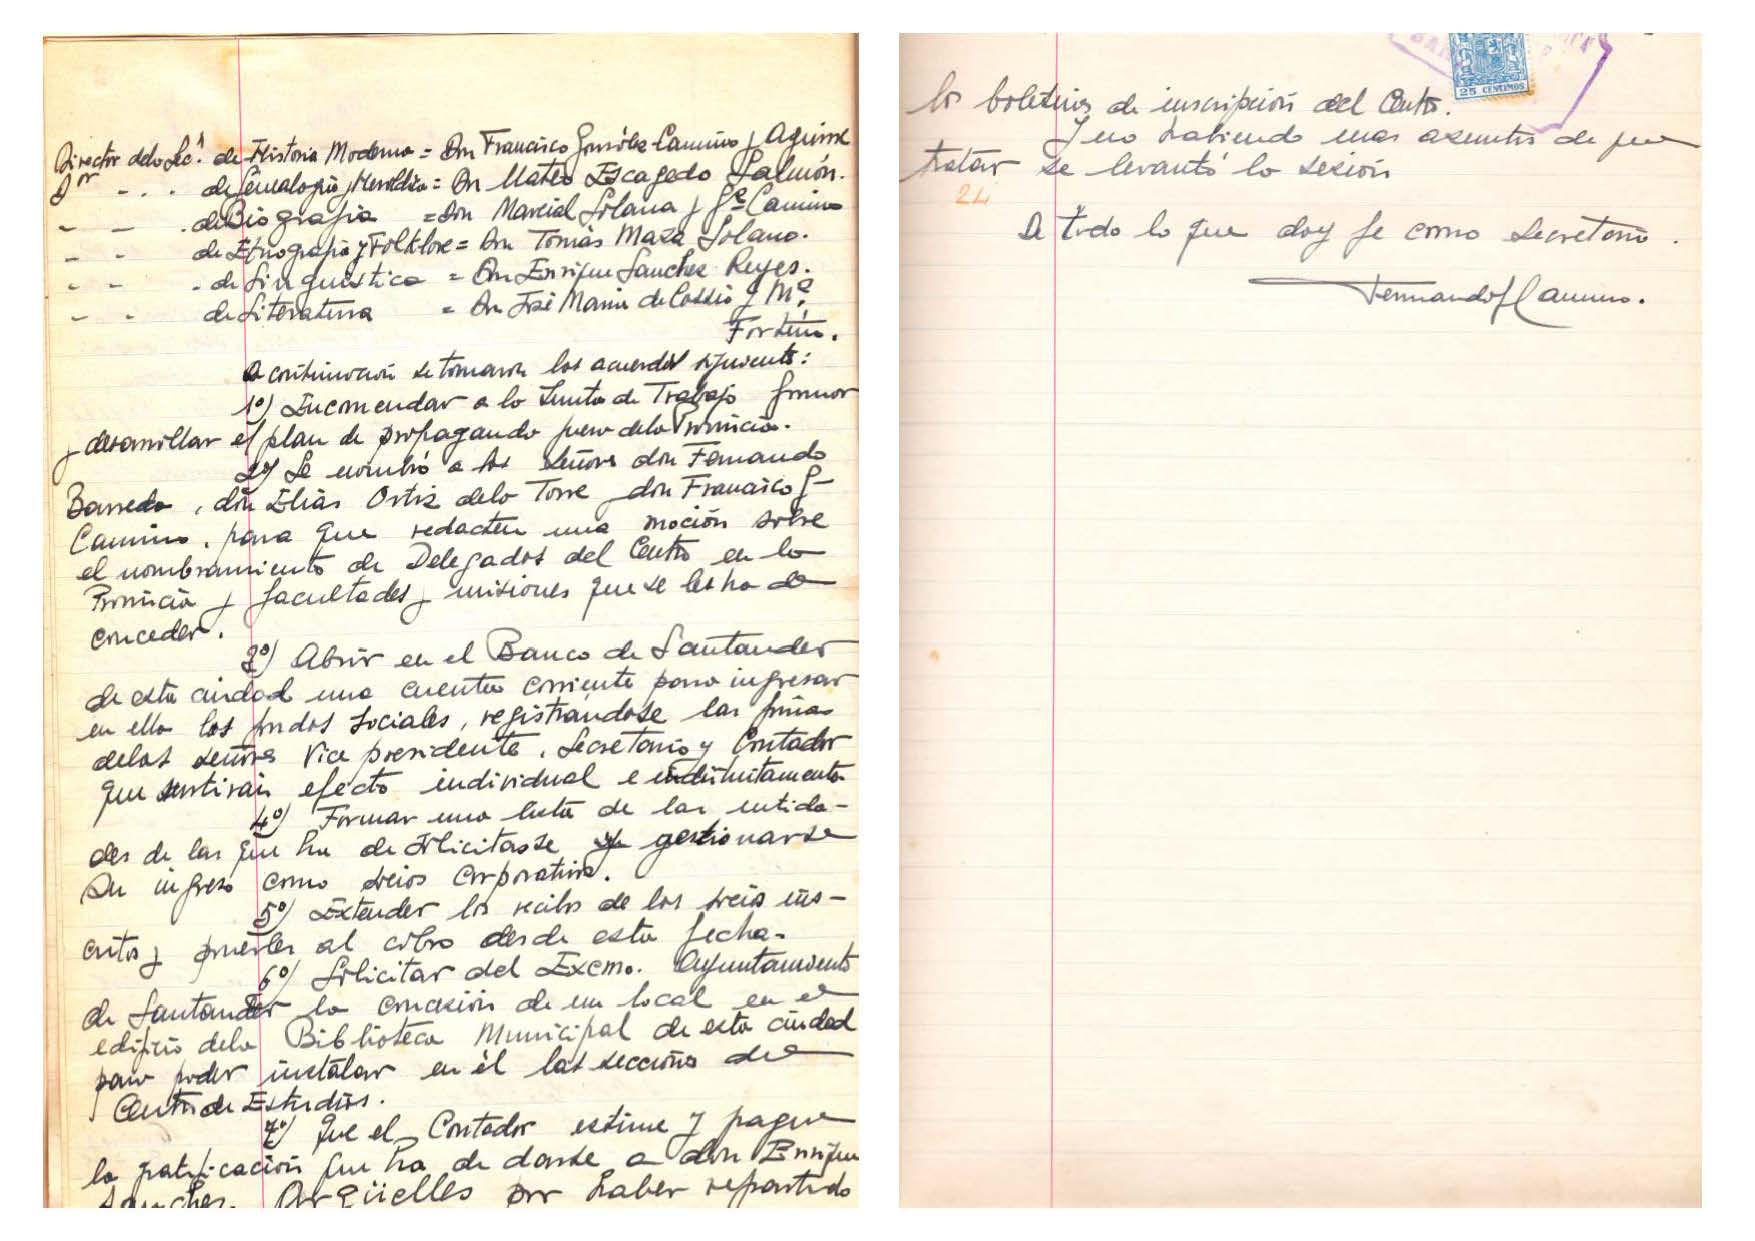 Director dela Sec.ⁿ de Historia Moderna = Don Francisco González-Camino y Aguirre
Dᵒʳ - . . de Genealogía y Heráldica = Don Mateo Escagedo Salmón.
- - . de Biografía = don Marcial Solana y Gᶻ Camino
- - de Etnografía y Folklore = Don Tomás Maza Solano.
- - . de Linguística = Don Enrique Sanchez Reyes.
- - de Literatura = Don José Maria de Cossío y Mᶻ
Fortún.
A continuación se tomaron los acuerdos siguientes:
1º) Encomendar a la Junta de Trabajo formar
y desarrollar el plan de propaganda fuera dela Provincia.
2º) Se nombró a los señores don Fernando
Barreda, don Elías Ortiz dela Torre y don Francisco G-
Camino, para que redacten una moción sobre
el nombramiento de Delegados del Centro en la
Provincia y facultades y misiones que se les ha de
conceder.
3º) Abrir en el Banco de Santander
de esta ciudad una cuenta corriente para ingresar
en ella los fondos sociales, registrándose las firmas
delos señores Vice presidente, Secretario y Contador
que surtirán efecto individual e indistintamente
4º) Formar una lista de las entida-
des de las que ha de solicitarse y gestionarse
su ingreso como socios corporativos.
5º) Extender los recibos de los socios ins-
critos y ponerlos al cobro desde esta fecha.
6º) Solicitar del Excmo. Ayuntamiento
de Santander la concesión de un local en el
edificio dela Biblioteca Municipal de esta ciudad
para poder instalar en él las secciones del
Centro de Estudios.
7º) Que el Contador estime y pague
la gratificación que ha de darse a don Enrique
Sanchez Argüelles por haber repartido
25 CENTIMOS
los boletines de inscripción del Centro.
Y no habiendo mas asuntos de que
tratar se levantó la sesión
21
De todo lo que doy fe como secretario.
Fernando G Camino.